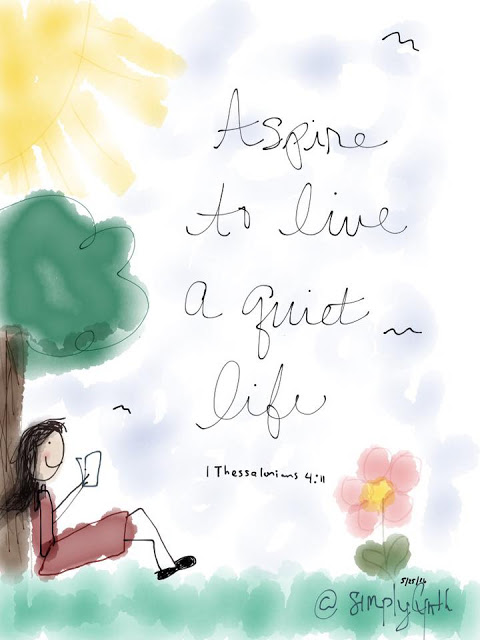 Aspire
to live
a quiet
life
1 Thessalonians 4:11
5/25/14
@ SimplyCynth